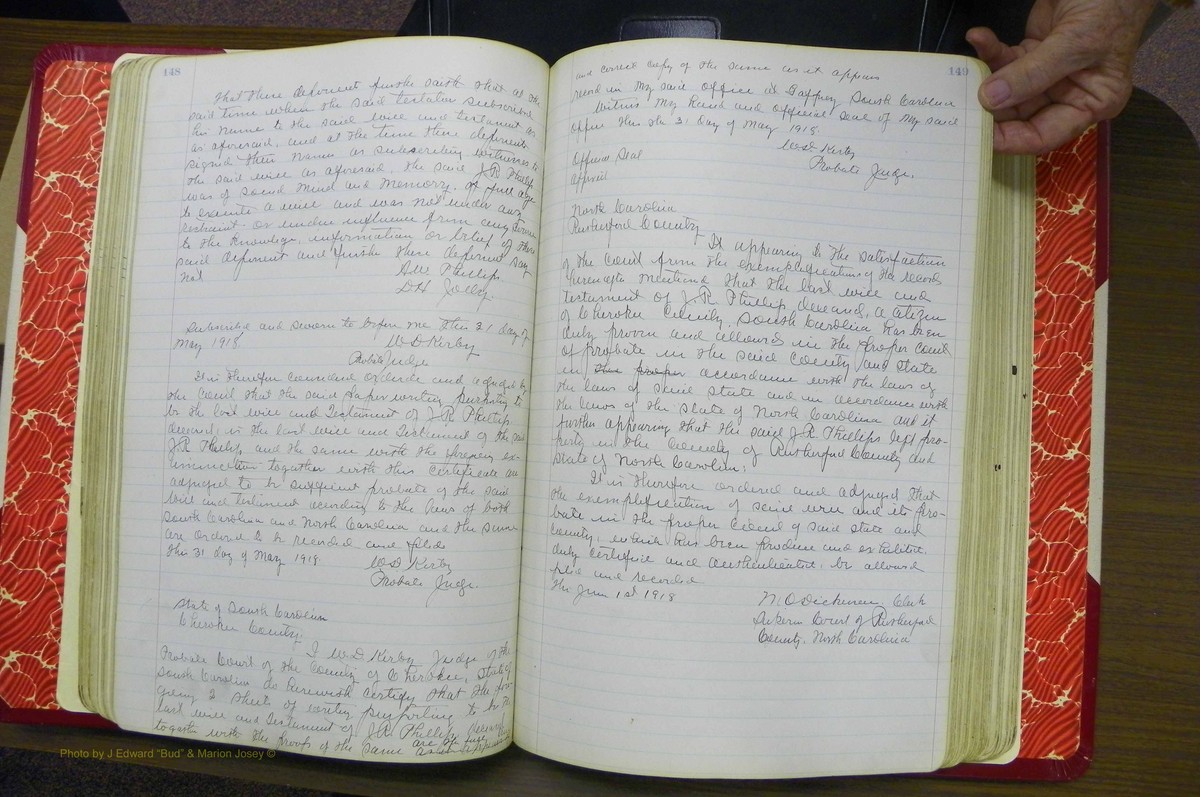 148
That these deponent further saith that at the
said time when the said testator subscribed
his name to the said will and testament as
as aforesaid, and at the time these deponents
signed their names as subscribing witnesses to
the said will as aforesaid, the said J.R. Phillips
was of sound mind and memory, of full age
to execute a will and was not under any
restraint or undue influence from any
to the knowledge, information or belief of these
said deponent and further these deponent say
not
Phillips
D.H. Jolly.
Subscribed and sworn to before me this 31 day of
May 1918
W D Kirby
Probate Judge
It is therefore considered ordered and adjudged by
the Court that the said paper writing purporting to
be the last will and testament of J.R. Phillips
deceased, is the last will and testament of the said
J.R. Phillips and the same with the foregoing ex-
amination together with this certificate are
adjudged to be sufficient probate of the said
will and testament according to the laws of both
South Carolina and North Carolina and the same
are ordered to be recorded and filed
This 31 day of May 1918
W D Kirby
Probate Judge.
State of South Carolina
Cherokee County.
I W D Kirby Judge of the
Probate Court of the County of Cherokee, State of
South Carolina do herewith certify that the fore
going 2 sheets of writing purporting to be the
last will and testament of J.R. Phillips deceased
together with the proofs of the same are
149
and correct copy of the same as it appears
record in my said office at Gaffney South Carolina
Witness my hand and official seal of my said
office this the 31 day of May 1918.
W D Kirby
Probate Judge.
Official Seal
North Carolina
Rutherford County
It appearing to the satisfaction
of the Court from the exemplification of the records
mentioned that the last will and
testament of J.R. Phillips deceased, a citizen
of Cherokee County, South Carolina has been
duly proven and allowed in the proper court
of probate in the said County and State
in the proper accordance with the laws of
the laws of said State and in accordance with
the laws of the State of North Carolina and it
further appearing that the said J.R. Phillips left pro-
perty in the County of Rutherford County and
State of North Carolina.
It is therefore ordered and adjudged that
the exemplification of said will and its pro-
bate in the proper court of said State and
County, which has been produced and exhibited
duly certified and authenticated, be allowed
filed and recorded
This June 1st 1918
M.O. Dickerson, Clerk
Superior Court of Rutherford
County, North Carolina
Photo by J Edward "Bud" & Marion Josey ©